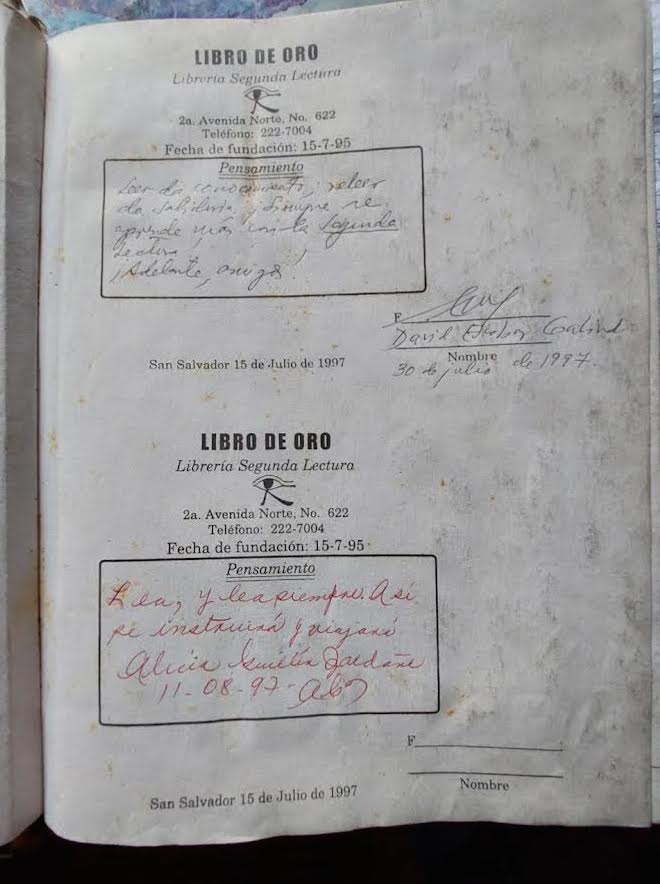 LIBRO DE ORO
Librería Segunda Lectura
2a. Avenida Norte, No. 622
Teléfono: 222-7004
Fecha de fundación: 15-7-95
Pensamiento
Leer da conocimiento; releer
da sabiduría, y siempre se
aprende más con la Segunda
Lectura.
¡Adelante, amigos!
F
David Escobar Galindo
San Salvador 15 de Julio de 1997
Nombre
30 de julio de 1997.
LIBRO DE ORO
Librería Segunda Lectura
2a. Avenida Norte, No. 622
Teléfono: 222-7004
Fecha de fundación: 15-7-95
Pensamiento
Lea, y lea siempre. Así
se instruirá y viajará
Alicia
11-08-97-
F
Nombre
San Salvador 15 de Julio de 1997